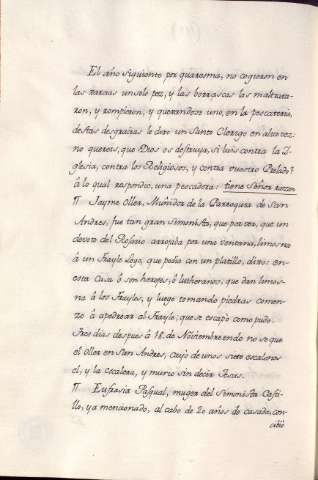 El año siguiente por quaresma, no cogieron en
las xarxas un solo pez, y las borrascas las maltrata-
ron, y rompieron, y quexandose uno, en la pescateria,
destas desgracias le dixo un Santo Clerigo en alta voz:
no quereis, que Dios os destruya, si bais contra la I-
glesia, contra los Religiosos, y contra nuestro Prelado?
á lo qual respondio una pescadora: tiene Señor razon
¶ Jayme Oller, Muñidor de la Parroquia de San
Andres, fue tan gran Simonista, que por ver, que un
devoto del Rosario arrojaba por una ventana, limosna
á un Frayle lego, que pedia con un platillo, dixo: en
esta casa ó son hereges, ó lutheranos, que dan limos-
na á los Frayles, y luego tomando piedras comen-
zo à apedrear al Frayle, que se escapó como pudo.
Tres dias despues á 18. de Noviembre ... no se que
el Oller en San Andres, cayó de unos siete escalones
el, y la escalera, y murio sin decir Jesus.
¶ Eufrasia Pasqual, muger del Simonista Casti-
llo, ya mencionado, al cabo de 20 años de casada, con-
cibió